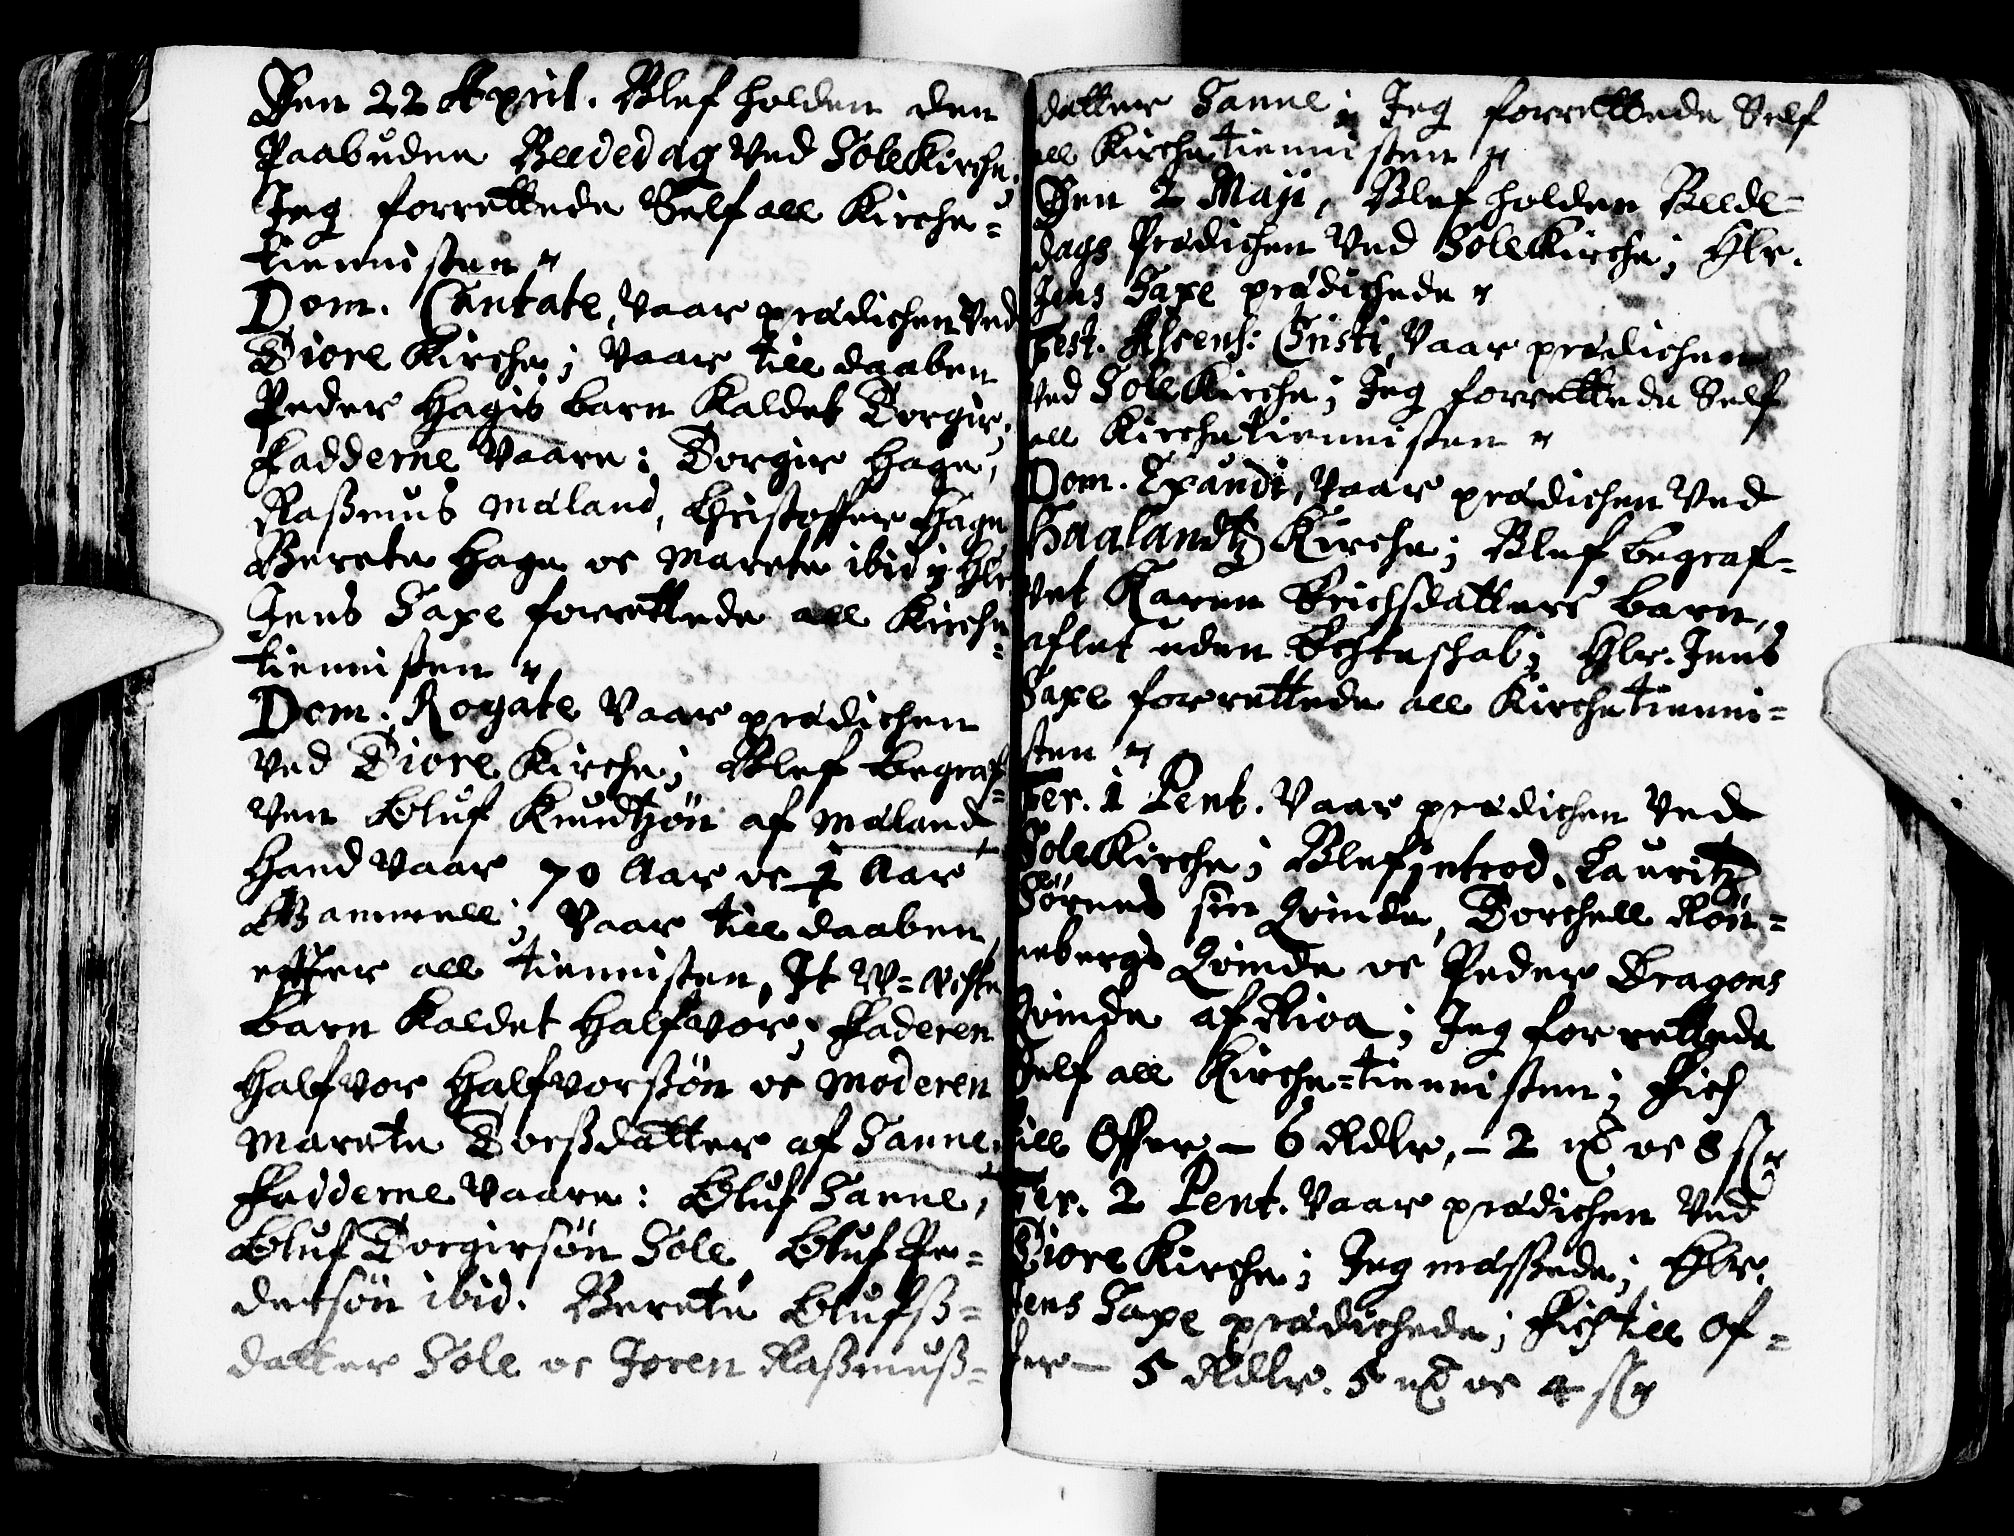 Den 22 April. Blef holden den
Paabuden Beededag ved Sole Kirche;
Jeg forrettede Self all Kirche-
tiennisten "
Dom. Cantate, vaar prædichen ved
Tiore Kirche; vaar till daaben
Peder Hagis barn Kaldet Torgir;
Fadderne vaare: Torgir Hage,
Rasmus Mæland, Christoffer Hage
Berete Hage oc Marete ibid; Hlr
Jens Saxe forrettede all Kirche-
tiennisten "
Dom. Rogate vaar prædichen
ved Tiore Kirche; Blef begraf-
ven Oluf Knudtzøn af Mæland
Hand vaar 70 Aar oc Aar
Gammell; vaar till daaben,
effter all tiennisten, It W-echte
barn Kaldet Halfvor; Faderen
Halfvor Halfvorsøn oc Moderen
Marete Torsdatter af Sanne;
Fadderne vaare: Oluf Sanne,
Oluf Torgirsøn Sole, Oluf Pe-
dersøn ibid. Berete Olufs-
datter Sole oc Joren Rasmus-
datter Sanne; Jeg forrettede Self
all Kirchetiennisten "
Den 2 Maji, Blef holden Beede-
dags Prædichen ved Sole Kirche; Hlr.
Jens Saxe prædichede "
Fest. Ascens: Cristi, vaar prædichen
ved Sole Kirche; Jeg forrettede Self
all Kirchetiennisten "
Dom. Exaudi, vaar prædichen ved
Haalandtz Kirche; Blef begraf-
vet Karen Erichsdatters barn,
aflet uden Echteskab; Hlr. Jens
Saxe forrettede all Kirchetienni-
sten "
Fer. 1 Pent. vaar prædichen ved
Sole Kirche; Blef introd. Lauritz
Sørens sin Qvinde, Torchell Røn-
nebergs Qvinde oc Peder Dragons
Qvinde af Rioa; Jeg forrettede
Self all Kirche-tiennisten; Fich
till Offer - 6 Rdlr, - 2 oc 8 ss
Fer. 2 Pent. vaar prædichen ved
Tiore Kirche; Jeg messede; Hlr.
Jens Saxe prædichede; Fich till Of-
fer - 5 Rdlr. 5 oc 4 ss